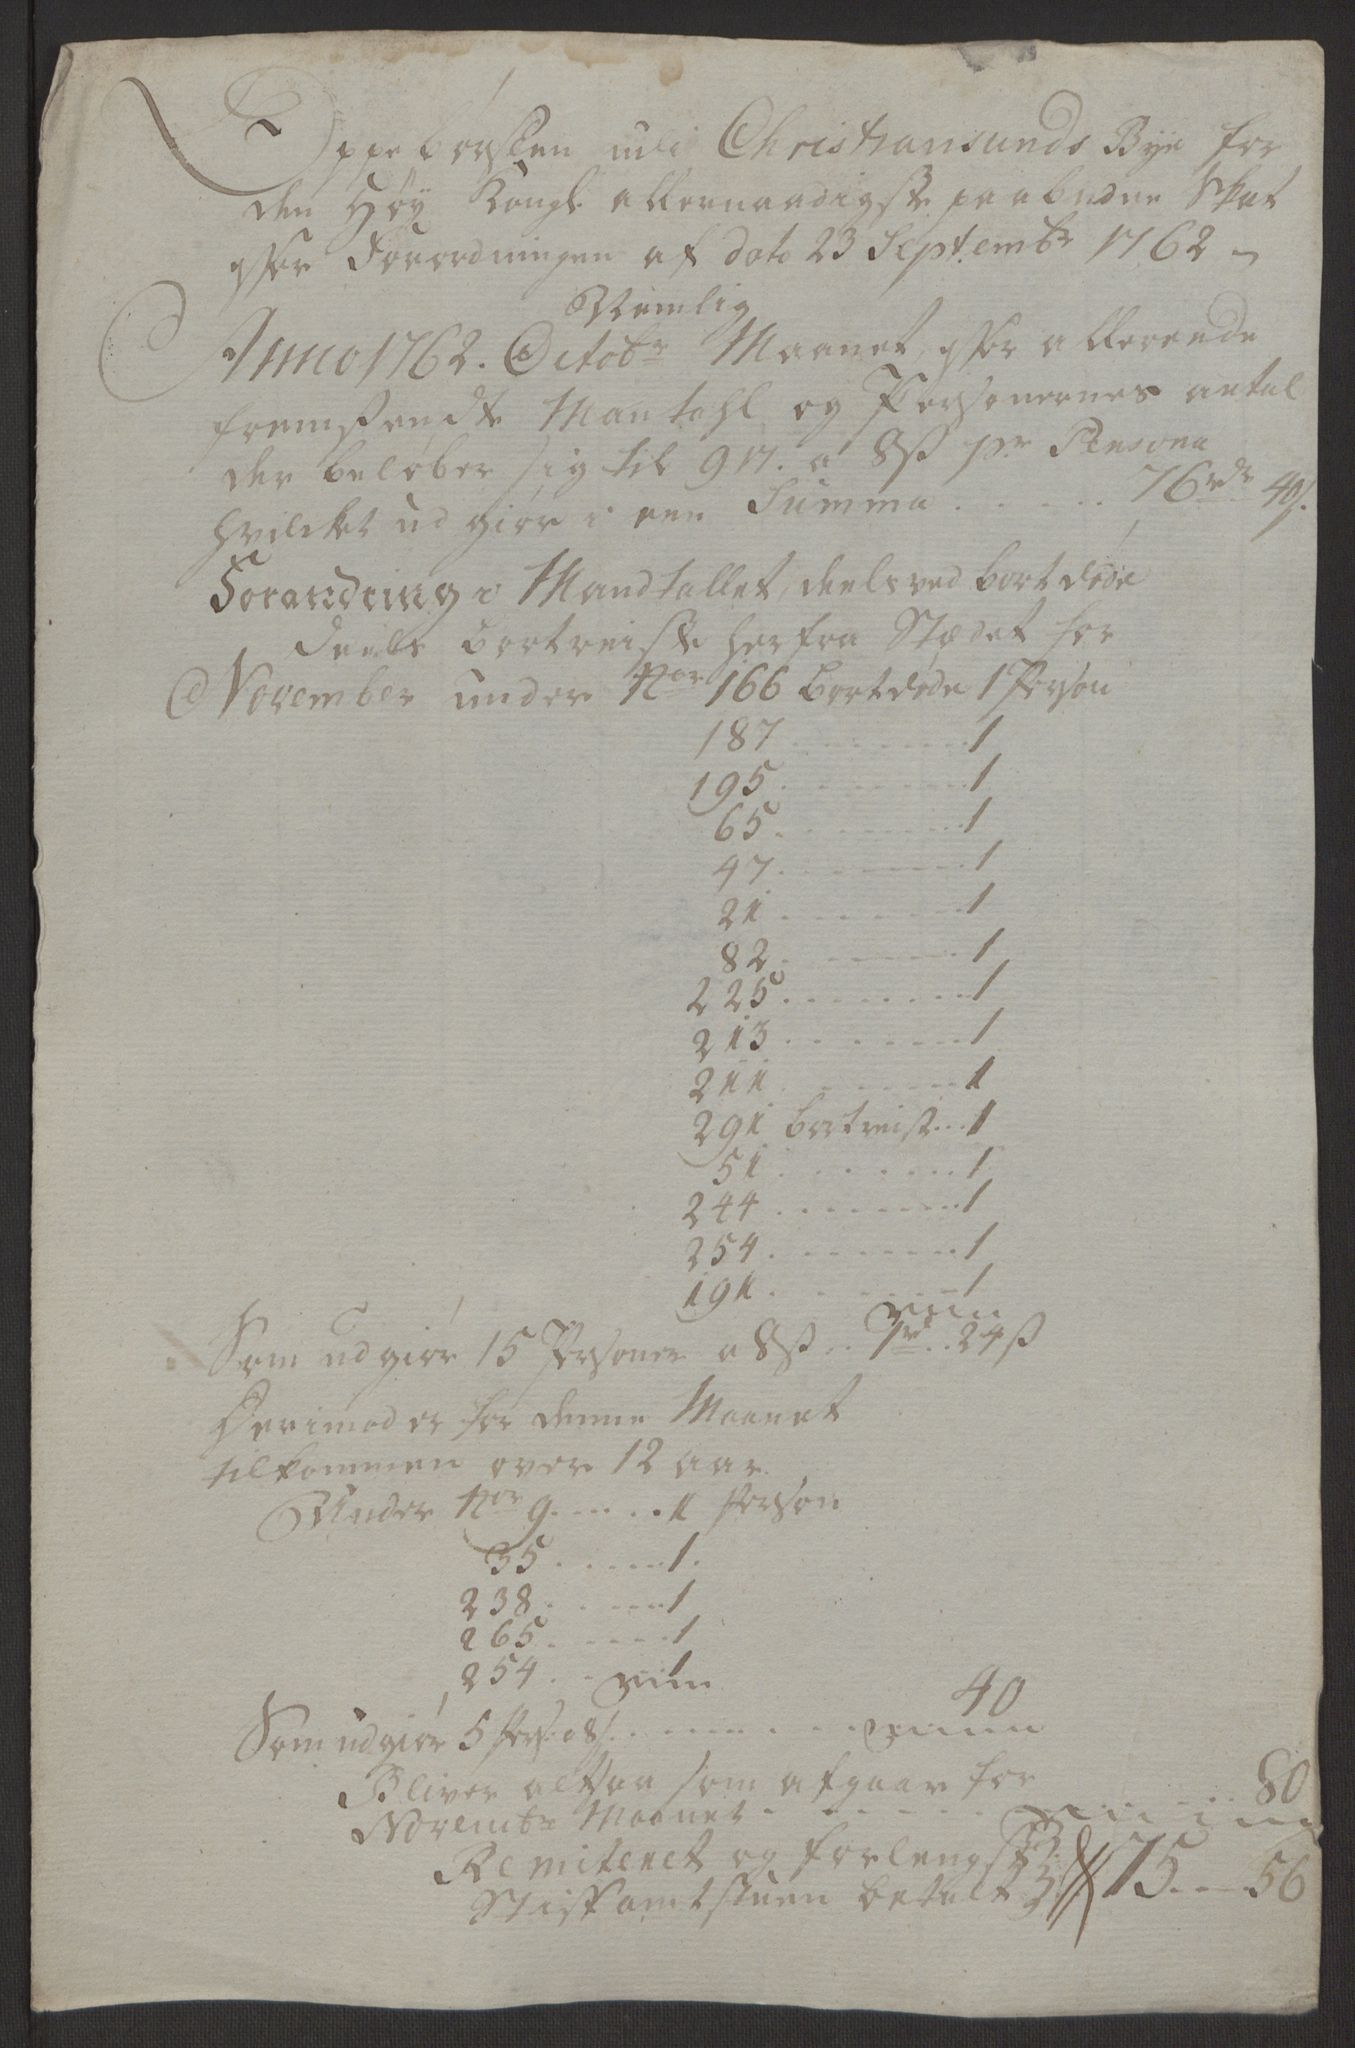 Oppebørsten udi Christiansunds Bye for
den Høy Kongl: allernaadigste paabudne Skat
efter Forordningen af dato 23 Septembr 1762
Nemlig
Anno 1762. Octobr Maanet, efter allerende
fremsendte Mantahl og Personernes antal
der beløber sig til 917. a 8ß pr Persona
hvilcket udgiør i een Summa . . . . . 76rdr 40ß.
Forandring i Mandtallet, deels ved bortdøde
deels bortreiste herfra Stædet for
November under Nor 166 bortdøde 1 Person
187 . . . . . . . . 1
195 . . . . . . . . 1
65 . . . . . . . . 1
47 . . . . . . . . 1
21 . . . . . . . . 1
82 . . . . . . . . 1
225 . . . . . . . . 1
213 . . . . . . . . 1
211 . . . . . . . . 1
291 bortreist . . . 1
51 . . . . . . . . 1
244 . . . . . . . . 1
254 . . . . . . . . 1
191 . . . . . . . . 1
Som udgiør 15 Personer a 8ß . . 1rd . . 24ß
Derimod er for denne Maanet
tilkommen over 12 aar
Under Nor 9 . . . . . 1 Person
35 . . . . . 1.
238 . . . . . 1
265 . . . . . 1
254 . . . . . 1
Som udgiør 5 Pers: a 8ß . . . . . . . . 40
Bliver altsaa som afgaar for
Novembr Maanet . . . . . . . . 80
Remiteret og forlengst
Stiftamtstuen betalt 75 . . 56